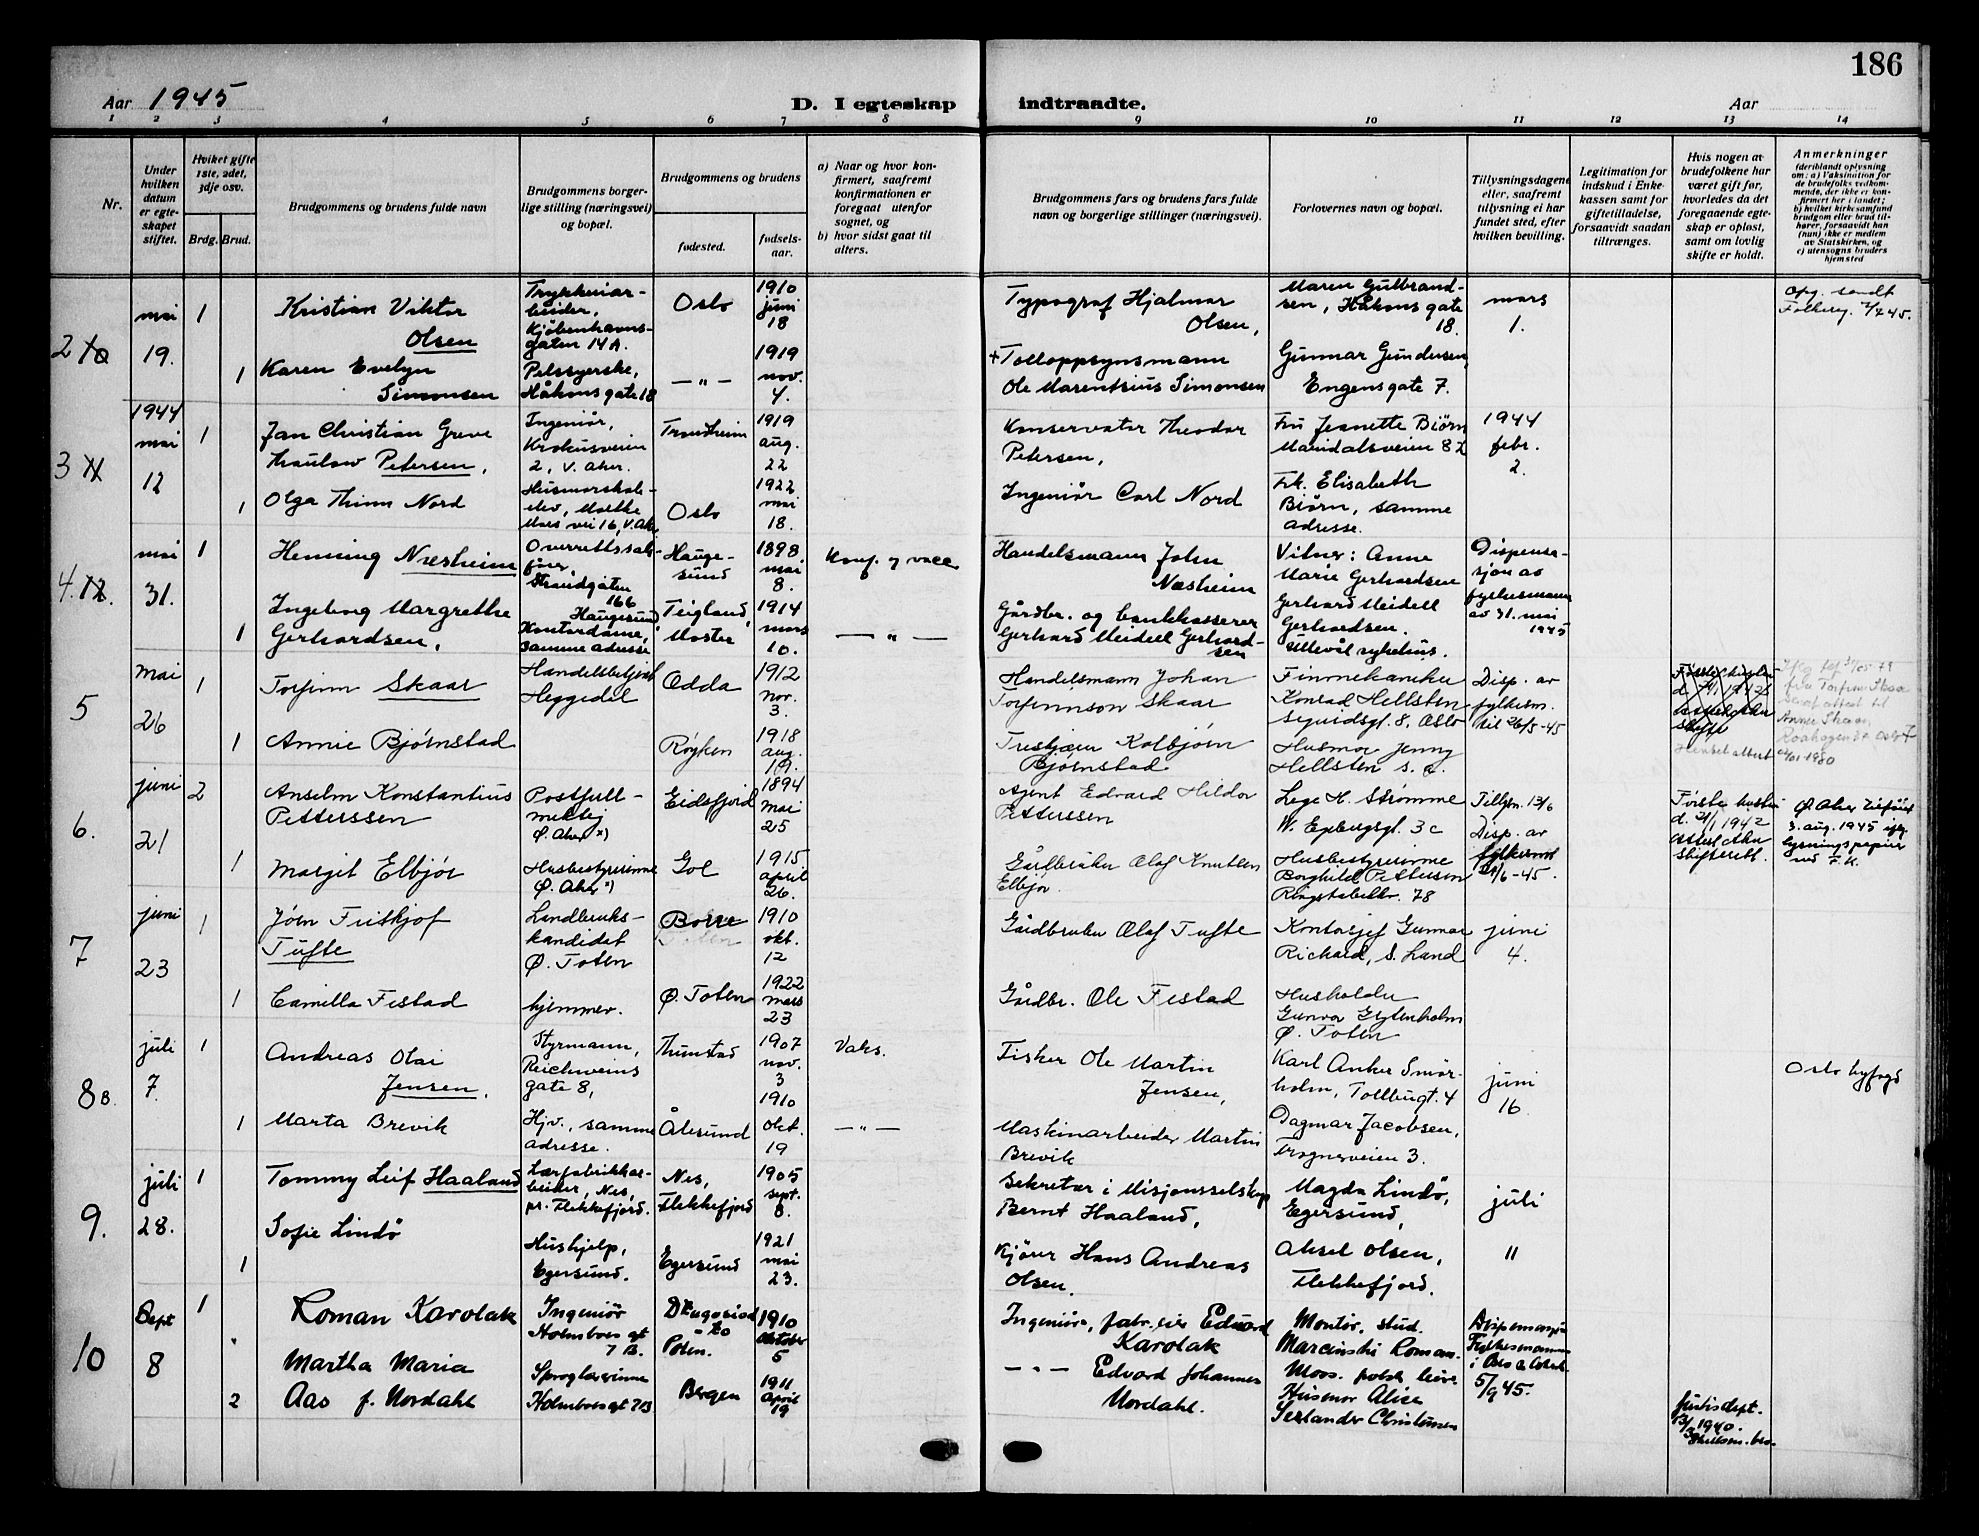 186
Aar 1945
D. I egteskap
indtraadte.
Aar
1 2 3 4 5 6 7 8 9 10 11 12 13 14
Nr.
Under
hvilken
datum
er egte-
skapet
stiftet.
Hviket gifte
1ste, 2det,
3dje osv.
Brdg. Brud.
Brudgommens og brudens fulde navn
Brudgommens borger-
lige stilling (næringsvei)
og bopæl.
Brudgommens og brudens
fødested.
fødsels-
aar.
a) Naar og hvor kon-
firmert, saafremt
konfirmationen er
foregaat utenfor
sognet, og
b) hvor sidst gaat til
alters.
Brudgommens fars og brudens fars fulde
navn og borgerlige stillinger (næringsvei).
Forlovernes navn og bopæl.
Tillysningsdagene
eller, saafremt
tillysning ei har
fundet sted, efter
hvilken bevilling.
Legitimation for
indskud i Enke-
kassen samt for
giftetilladelse,
forsaavidt saadan
tiltrænges.
Hvis nogen av
brudefolkene har
været gift før,
hvorledes da det
foregaaende egte-
skap er opløst,
samt om lovlig
skifte er holdt.
Anmerkninger
(deriblandt oplysning
om: a) Vaksination for
de brudefolks vedkom-
mende, der ikke er kon-
firmert her i landet;
b) hvilket kirkesamfund
brudgom eller brud til-
hører, forsaavidt han
(hun) ikke er medlem
av Statskirken, og
c) utensogns bruders
hjemsted
2
mai
19.
1
Kristian Viktor
Olsen
Trykkeriar-
beider,
Kjøbenhavns-
gaten 14 A.
Oslo
1910
juni
18
Typograf Hjalmar
Olsen,
Maren Gulbrand-
sen, Håkons gate
18.
mars
1.
Opg. sendt
1
Karen Evelyn
Simonsen
Pelssyerske,
Håkons gate 18
— " —
1919
nov.
4.
+ Tolloppsynsmann
Ole Marentsius Simonsen
Gunnar Gundersen
Engens gate 7.
3
1944
mai
12
1
Jan Christian Greve
Thaulow Petersen,
Ingeniør,
Krokusveien
2, V. Aker.
Trondheim
1919
aug.
22
Konservator Theodor
Petersen,
Fru Jeanette Biørn
Maridalsveien 82
1944
febr.
2.
1
Olga Thinn Nord
Husmorskole-
elev, Moltke
Moes vei 16, V. Aker
Oslo
1922
mai
18.
Ingeniør Carl Nord
Frk. Elisabeth
Biørn, samme
adresse.
4.
mai
31.
1
Henning Næsheim
Overrettssak-
fører,
Strandgaten
166
Haugesund
Hauge-
sund
1898
mai
8.
Konf. og vacc.
Handelsmann John
Næsheim
Vitner: Anne
Marie Gerhardsen
Dispensa-
sjon av
fylkesmann
av 31. mai
1945
1
Ingeborg Margrethe
Gerhardsen,
Kontordame,
samme adresse
Teigland,
Moster
1914
mars
10.
— " —
Gårdbr. og bankkasserer
Gerhard Meidell Gerhard-
sen
Gerhard Meidell
Gerhardsen.
Ullevål sykehus.
5
mai
26
1
Torfinn Skaar
Handelsbetjent
Heggedal
Odda
1912
nov.
3.
Handelsmann Johan
Torfinnson Skaar
Konrad Hellsten
Sigurdsgt. 8, Oslo
Disp. av
fylkesm.
til 26/5-45
1
Annie Bjørnstad
Røyken
1918
aug.
19.
Kolbjørn
Bjørnstad
Husmor Jenny
Hellsten s. a.
6.
juni
21
2
Anselm Konstantius
Petterssen
Postfull-
mektig
Ø. Aker x)
Eidsfjord
1894
mai
25
Agent Edvard Hildor
Pettersen
Lege H. Strømme
3c
Tillysn. 13/6
Disp. av
fylkesm
21/6-45.
Første hustru
d. 21/1 1942
Attest Aker
skifterett.
Ø. Aker tilføiet
3. aug. 1945 iflg.
lysningspapirer
1
Margit Elbjør
Husbestyrerinne
Ø. Aker x)
Gol
1915
april
26.
Gårdbruker Olaf Knutsen
Elbjør.
Husbestyrerinne
Borghild Pettersen
Ringstabekkv. 78
7
juni
23
1
Jørn Fritkjof
Tufte
Landbruks-
kandidat
Ø. Toten
Borre
1910
okt.
12
Gårdbruker Olaf Tufte
Kontorsjef Gunnar
Richard, S. Land
juni
4.
1
Camilla Festad
hjemmev.
Ø. Toten
1922
mars
23
Gårdbr. Ole Festad
Husholder
Gunvor
Ø. Toten
8
juli
7.
1
Andreas Olai
Jensen,
Styrmann,
Reichweins
gate 8,
1907
nov.
3
Vaks.
Fisker Ole Martin
Jensen,
Karl Anker Smør-
holm, Tollbugt. 4
juni
16.
Oslo byfogd
1
Marta Brevik
Hjv., samme
adresse.
Ålesund
1910
okt.
19
— " —
Maskinarbeider Martin
Brevik
Dagmar Jacobsen,
Frognerveien 3.
9.
juli
28.
1
Tommy Leif Haaland
Lærfabrikkar-
beider, Nes,
pr. Flekkefjord.
Nes,
Flekkefjord
1905
sept.
8.
Sekretær i Misjonsselskap
Bernt Haaland,
Magda Lindø,
Egersund,
juli
11
1
Sofie Lindø
Hushjelp,
Egersund.
Egersund
1921
mai
23.
Kjører Hans Andreas
Olsen.
Aksel Olsen,
Flekkefjord.
10
Sept
8
1
Roman Karolak
Ingeniør
Holmboes gt
7 B.
Posen.
1910
oktober
5
Ingeniør, fabr. eier Edward
Karolak
Montør, stud.
Marcinski Roman.
Moos. polsk leire
Dispensasjon
Fylkesmannen
5/9 45.
2
Martha Maria
Aas f. Nordahl
Sproglærerinne
Holmboes gt 7 B
Bergen
1911
April
19
— " — Edvard Johannes
Nordahl.
Husmor Alise
Serlander Christensen
Justisdept.
1940.